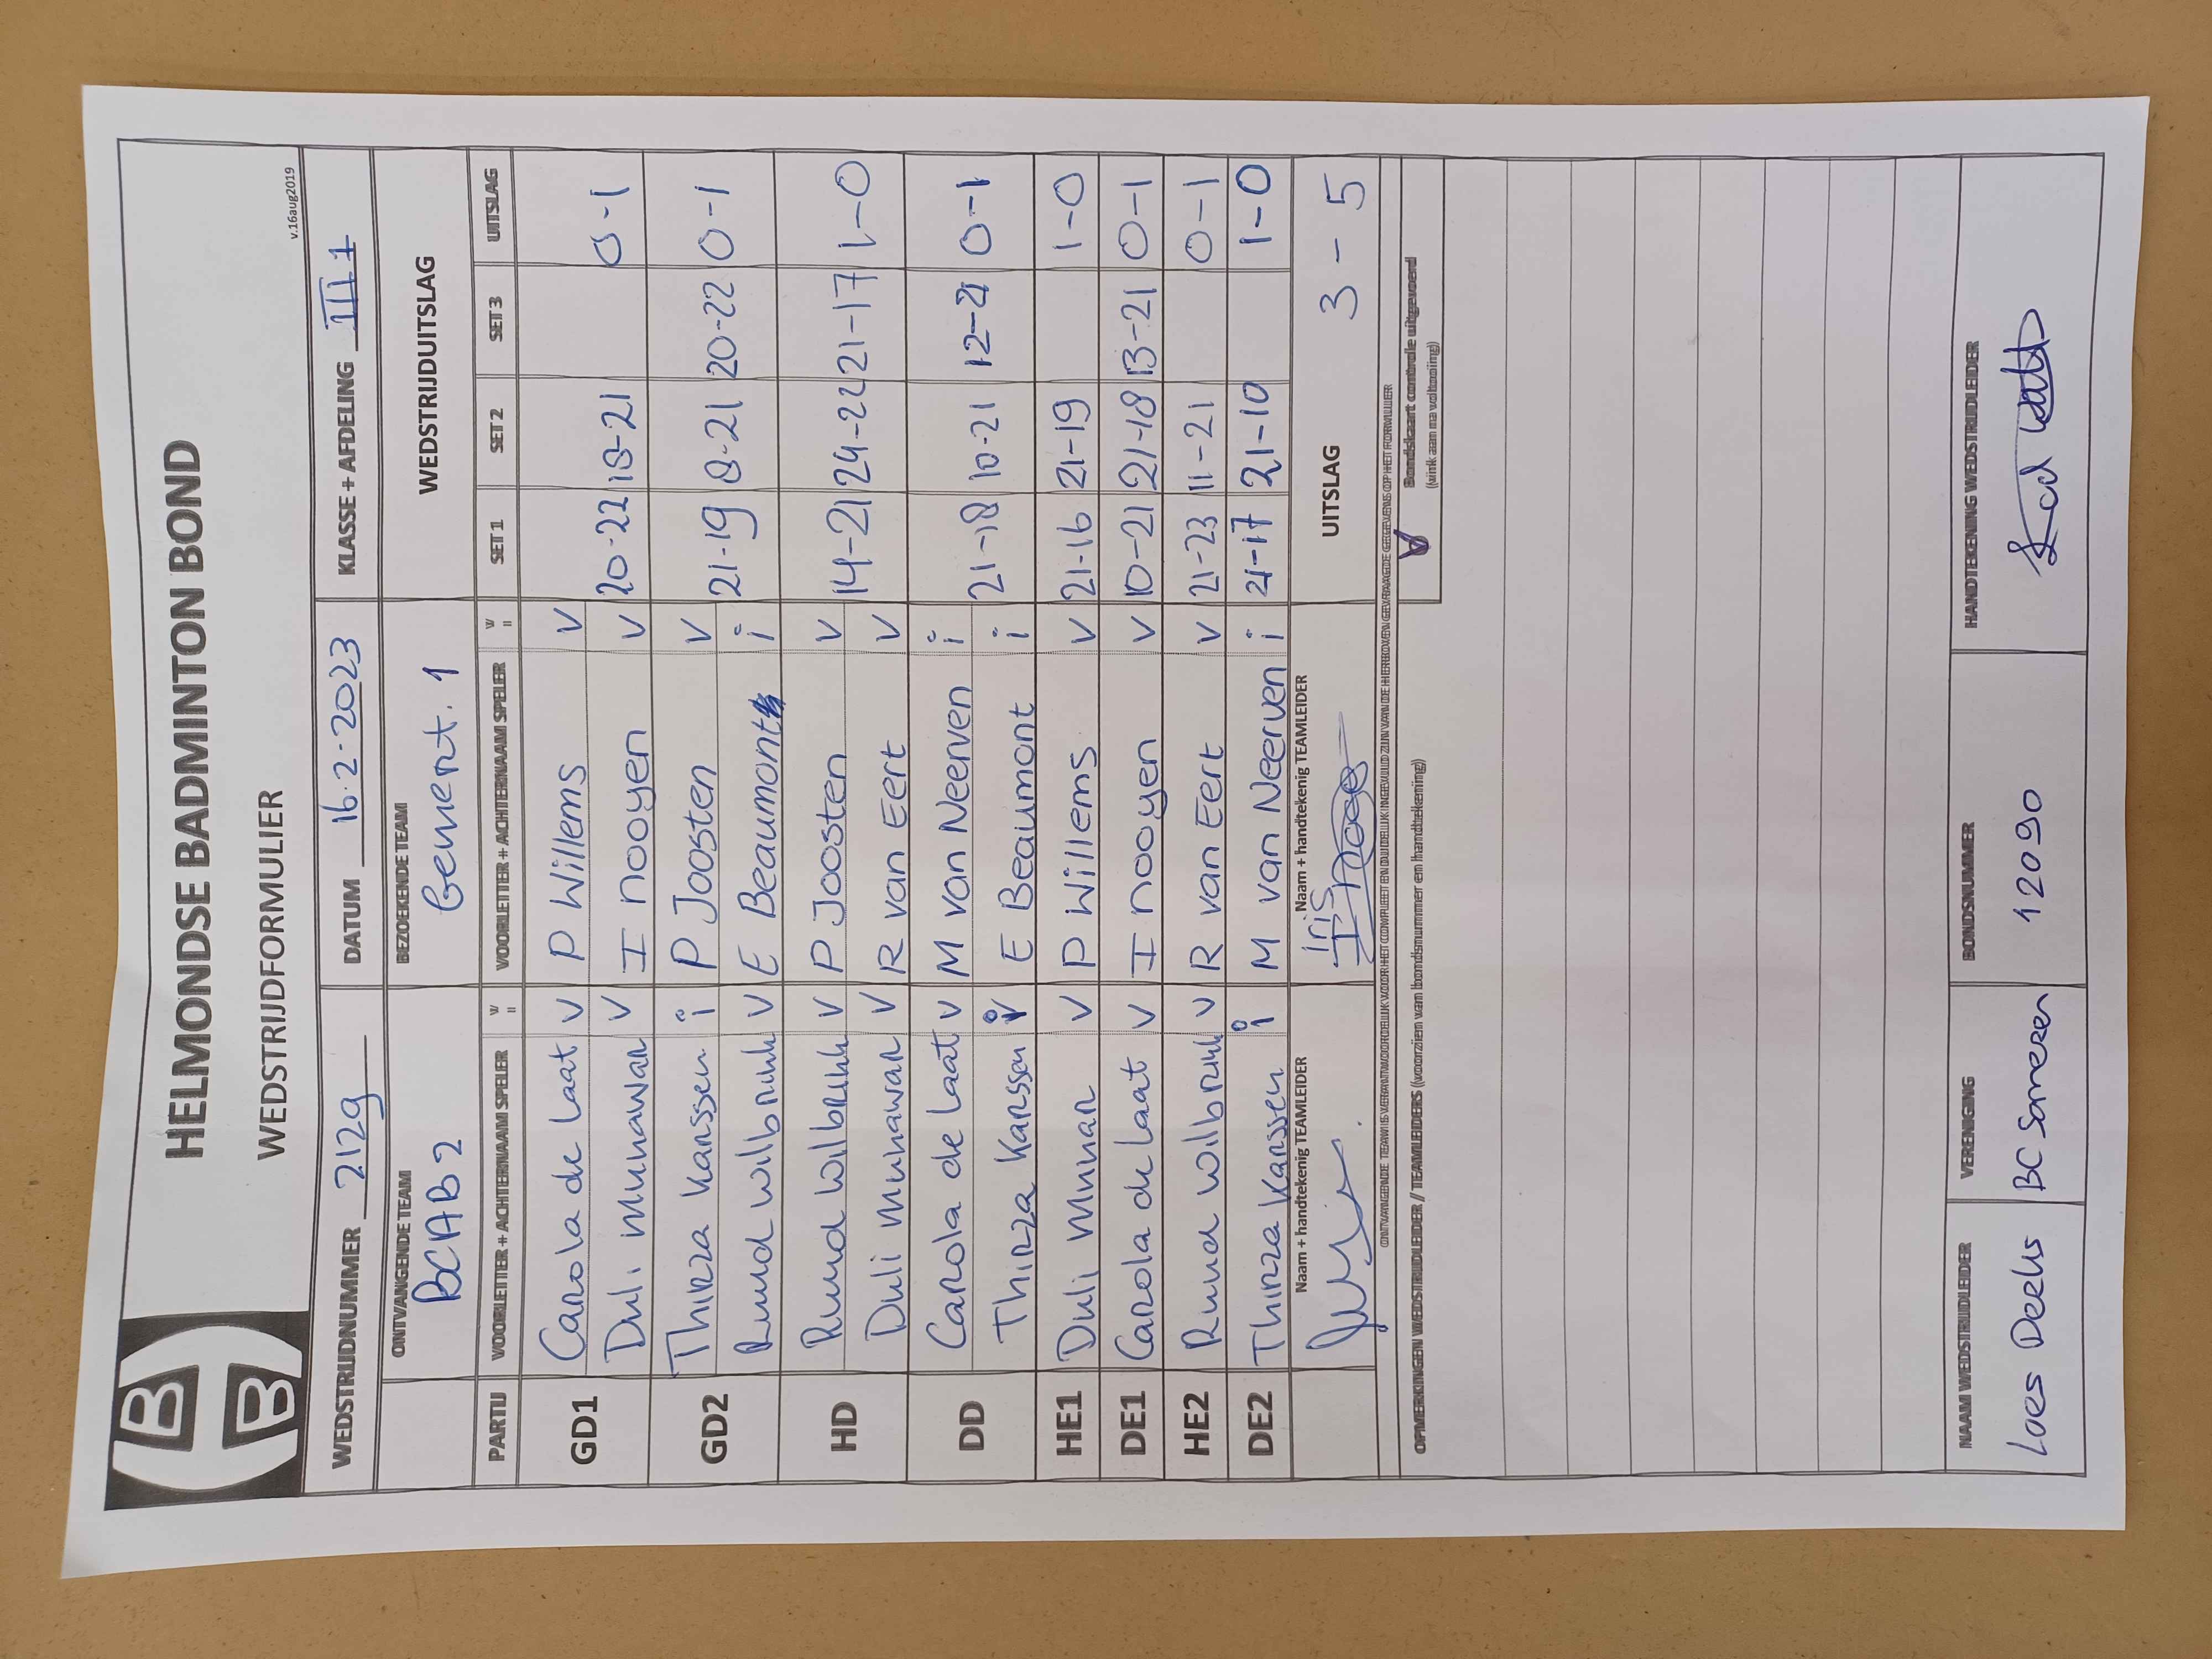 HELMONDSE BADMINTON BOND
WEDSTRIJDFORMULIER
v.16aug2019
WEDSTRIJDNUMMER 2129 DATUM 16-2-2023 KLASSE + AFDELING III 1
ONTVANGENDE TEAM BEZOEKENDE TEAM WEDSTRIJDUITSLAG
BCAB 2 Gemert. 1
PARTIJ VOORLETTER + ACHTERNAAM SPELER VOORLETTER + ACHTERNAAM SPELER SET 1 SET 2 SET 3 UITSLAG
GD1 Carola de Laat V P Willems V
Duli Munawar V I nooyen V 20-22 18-21 0-1
GD2 Thirza Karssen i P Joosten V
Ruud Wilbrink V E Beaumont i 21-19 8-21 20-22 0-1
HD Ruud Wilbrink V P Joosten V
Duli Munawar V R van Eert V 14-21 24-22 21-17 1-0
DD Carola de Laat V M van Neerven i
Thirza Karssen E Beaumont i 21-18 10-21 12-21 0-1
HE1 Duli Munar V P Willems V 21-16 21-19 1-0
DE1 Carola de Laat V I nooyen V 10-21 21-18 13-21 0-1
HE2 Ruud Wilbrink V R van Eert V 21-23 11-21 0-1
DE2 Thirza Karssen i M van Neerven i 21-17 21-10 1-0
Naam + handtekenig TEAMLEIDER Naam + handtekenig TEAMLEIDER UITSLAG 3 - 5
Iris
ONTVANGENDE TEAM IS VERANTWOORDELIJK VOOR HET COMPLEET EN DUIDELIJK INGEVULD ZIJN VAN DE HIERBOVEN GEVRAAGDE GEGEVENS OP HET FORMULIER
OPMERKINGEN WEDSTRIJDLEIDER // TEAMLEIDERS (voorzien van bondsnummer en handtekening)
V Bondskaart controle uitgevoerd
(vink aan na voltooiing)
NAAM WEDSTRIJDLEIDER VERENIGING BONDSNUMMER HANDTEKENING WEDSTRIJDLEIDER
Loes Deelis BC Someren 12090